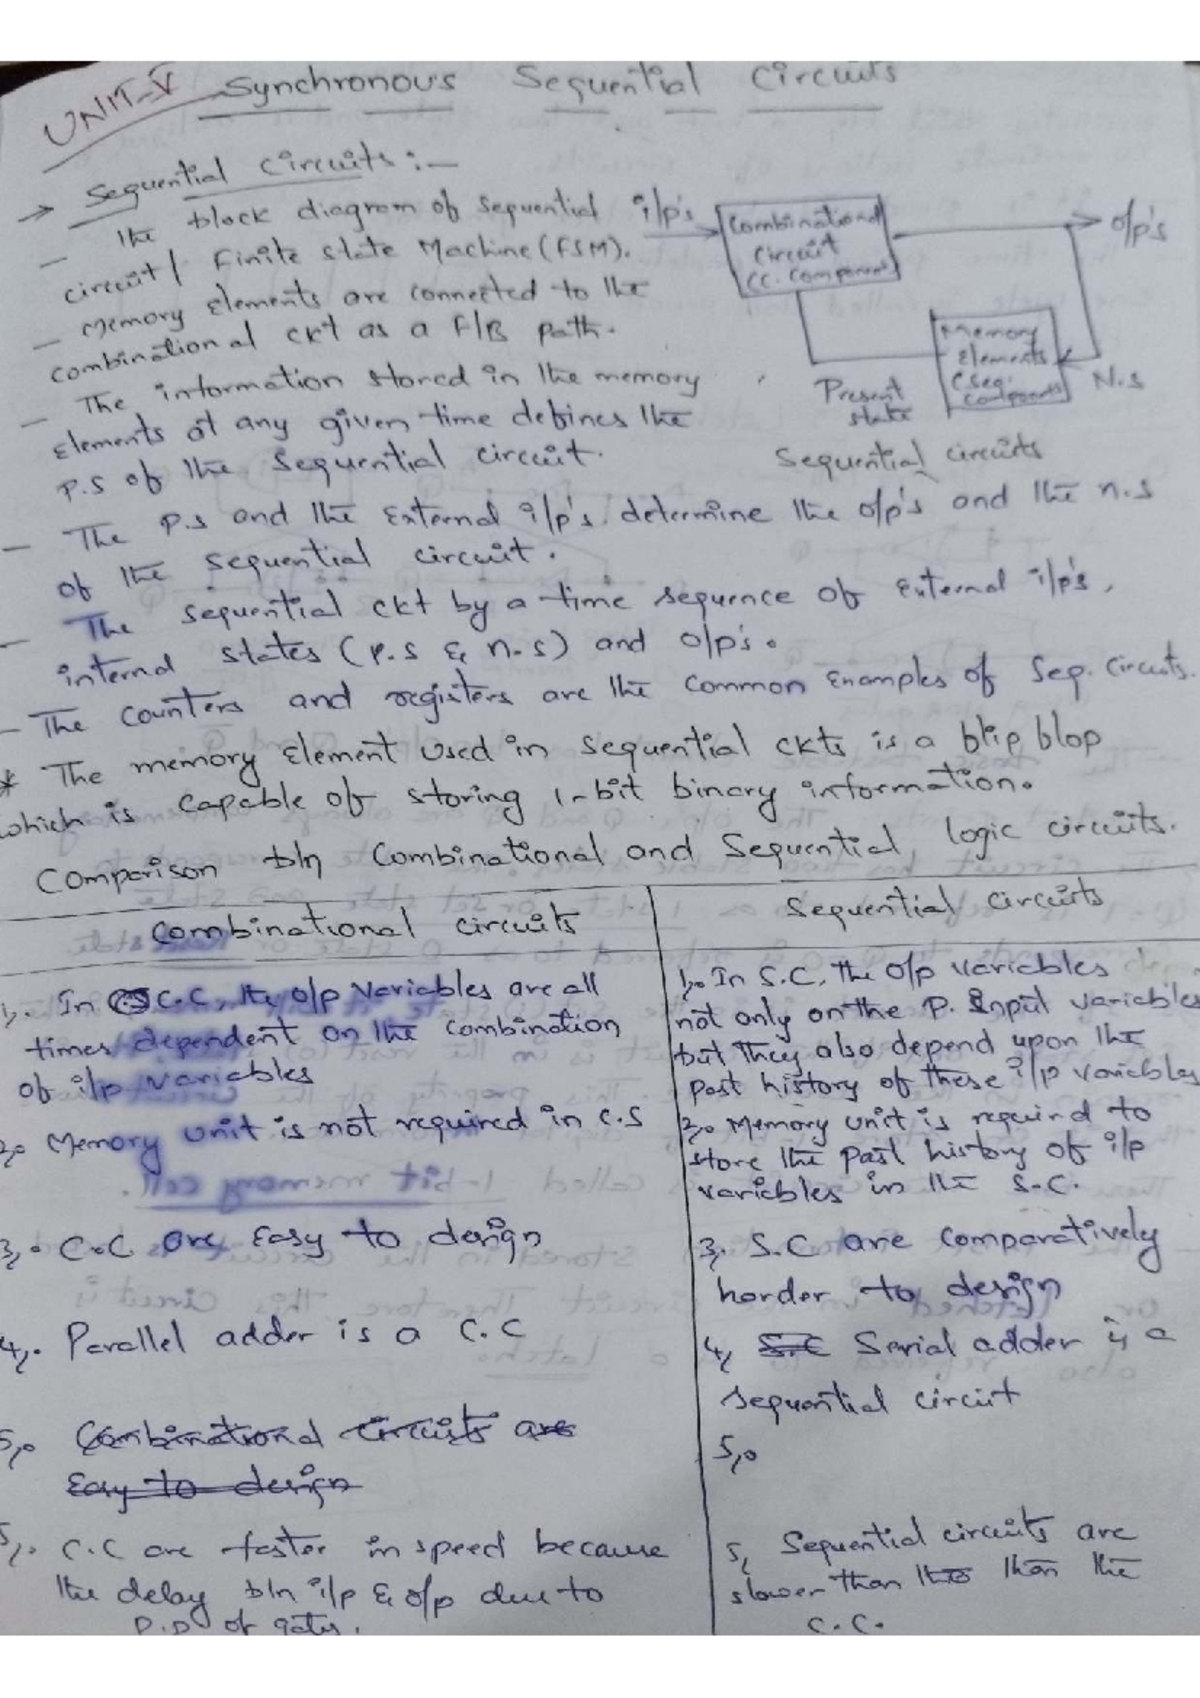 UNIT-V Synchronous Sequential Circuits
→ Sequential Circuits :-
— The block diagram of Sequential
circuit / Finite state Machine (FSM).
— Memory Elements are connected to the
combinational ckt as a F/B path.
— The information stored in the memory
Elements at any given time defines the
P.S of the Sequential circuit.
i/p's
Combinational
Circuit
(C. Component)
o/p's
Memory
Elements
(Seq.
components)
Present
state
N.S
Sequential circuits
— The P.S and the External i/p's determine the o/p's and the n.s
of the sequential circuit.
— The sequential ckt by a time sequence of External i/p's,
internal states (P.S & n.s) and o/p's.
— The counters and registers are the common Examples of Seq. Circuits.
* The memory Element used in sequential ckts is a flip flop
which is capable of storing 1-bit binary information.
Comparison b/n Combinational and Sequential logic circuits.
Combinational circuits
1). In C.C, the o/p variables are all
times dependent on the combination
of i/p variables
2. Memory unit is not required in C.S
1-bit memory cell.
3. C.C are Easy to design
4. Parallel adder is a C.C
5. Combinational circuits are
Easy to design
5. C.C are faster in speed because
the delay b/n i/p & o/p due to
P.D of gates.
Sequential circuits
1. In S.C, the o/p variables
not only on the P. Input variables
but they also depend upon the
past history of these i/p variables
2. Memory unit is requird to
store the past history of i/p
variables in the S.C.
3. S.C are comparatively
harder to design
4, S.C Serial adder is a
sequential circuit
5.
5, Sequential circuits are
slower than the than the
C.C.